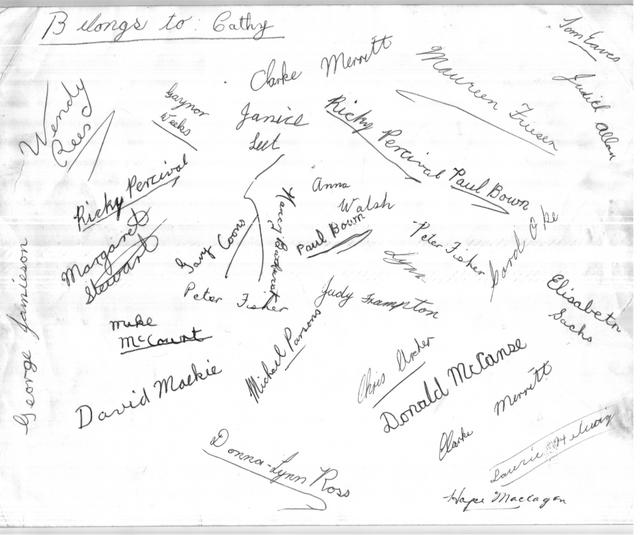 Belongs to: Cathy
Tom Eaves
Clarke Merrett
Maureen Friesen
Judith Allan
Wendy
Rees
Gaynor
Weeks
Janice
Ricky Percival
Paul Bown
Ricky Percival
Anna
Walsh
Margaret
Stewart
Gary Coons
Nancy
Paul Bown
Peter Fisher
Lynn
Gord
George Jamieson
Peter Fisher
Judy Frampton
Elisabeth
Sachs
Mike
McCourt
Michael Parsons
Chris Archer
Donald McCanse
David Mackie
Clarke Merrett
Laurie Helwig
Donna-Lynn Ross
Maclagan